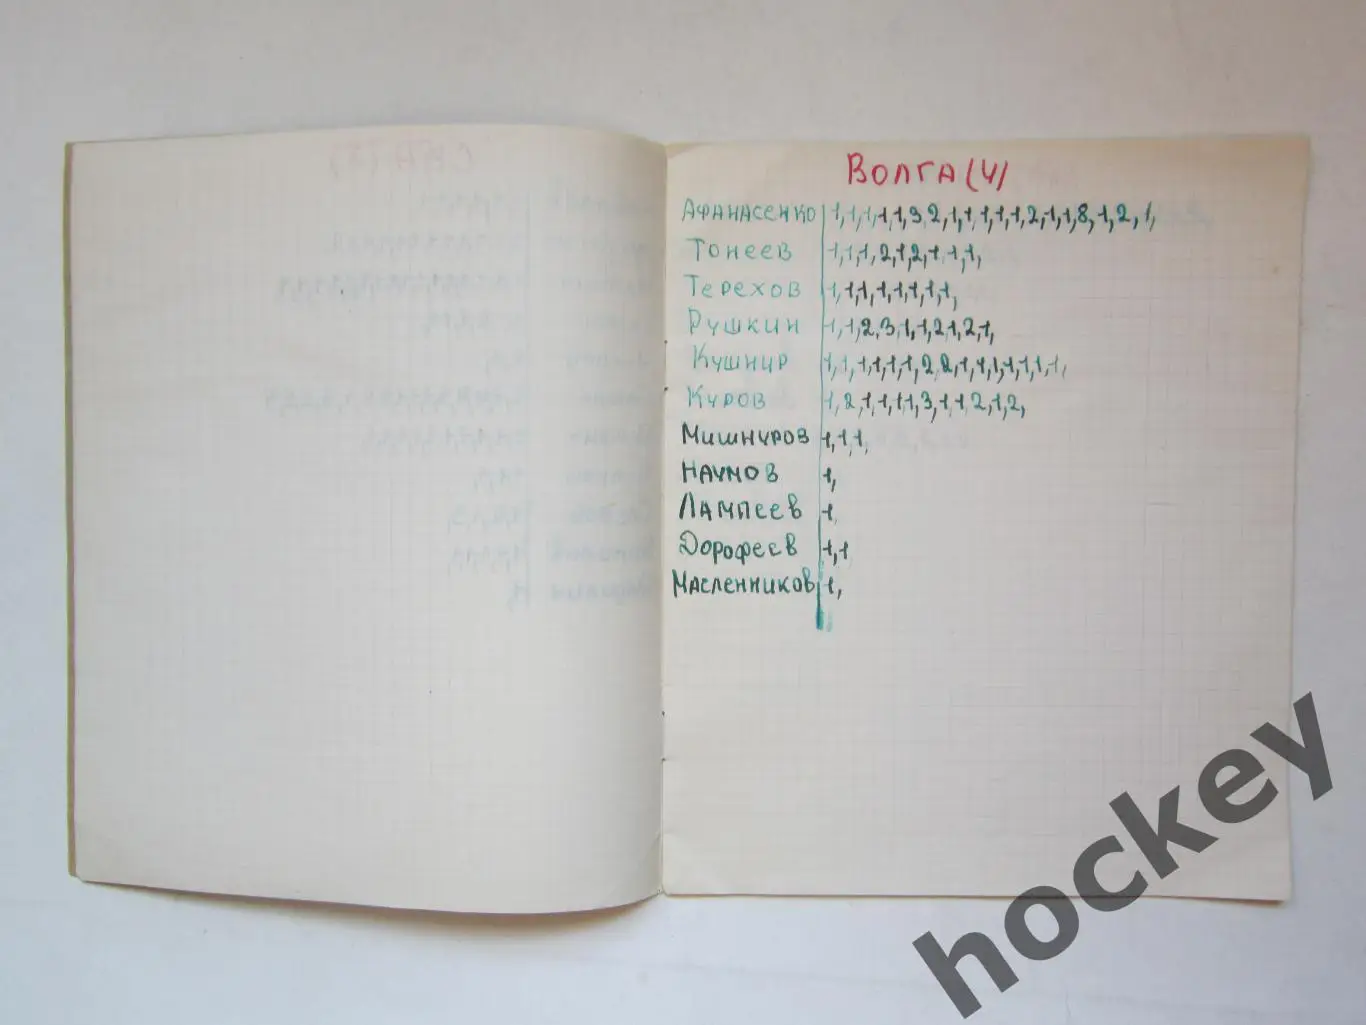 ВОЛГА (У)
АФАНАСЕНКО 1,1,1,1,1,3,2,1,1,1,1,1,2,1,1,8,1,2,1,
ТОНЕЕВ 1,1,1,2,1,2,1,1,1,
ТЕРЕХОВ 1,1,1,1,1,1,1,1,
РУШКИН 1,1,2,3,1,1,2,1,2,1,
КУШНИР 1,1,1,1,1,1,2,2,1,1,1,1,1,1,1,
КУРОВ 1,2,1,1,1,1,3,1,1,2,1,2,
МИШНУРОВ 1,1,1,
НАУМОВ 1,
ЛАМПЕЕВ 1,
ДОРОФЕЕВ 1,1,
МАСЛЕННИКОВ 1,
hockey